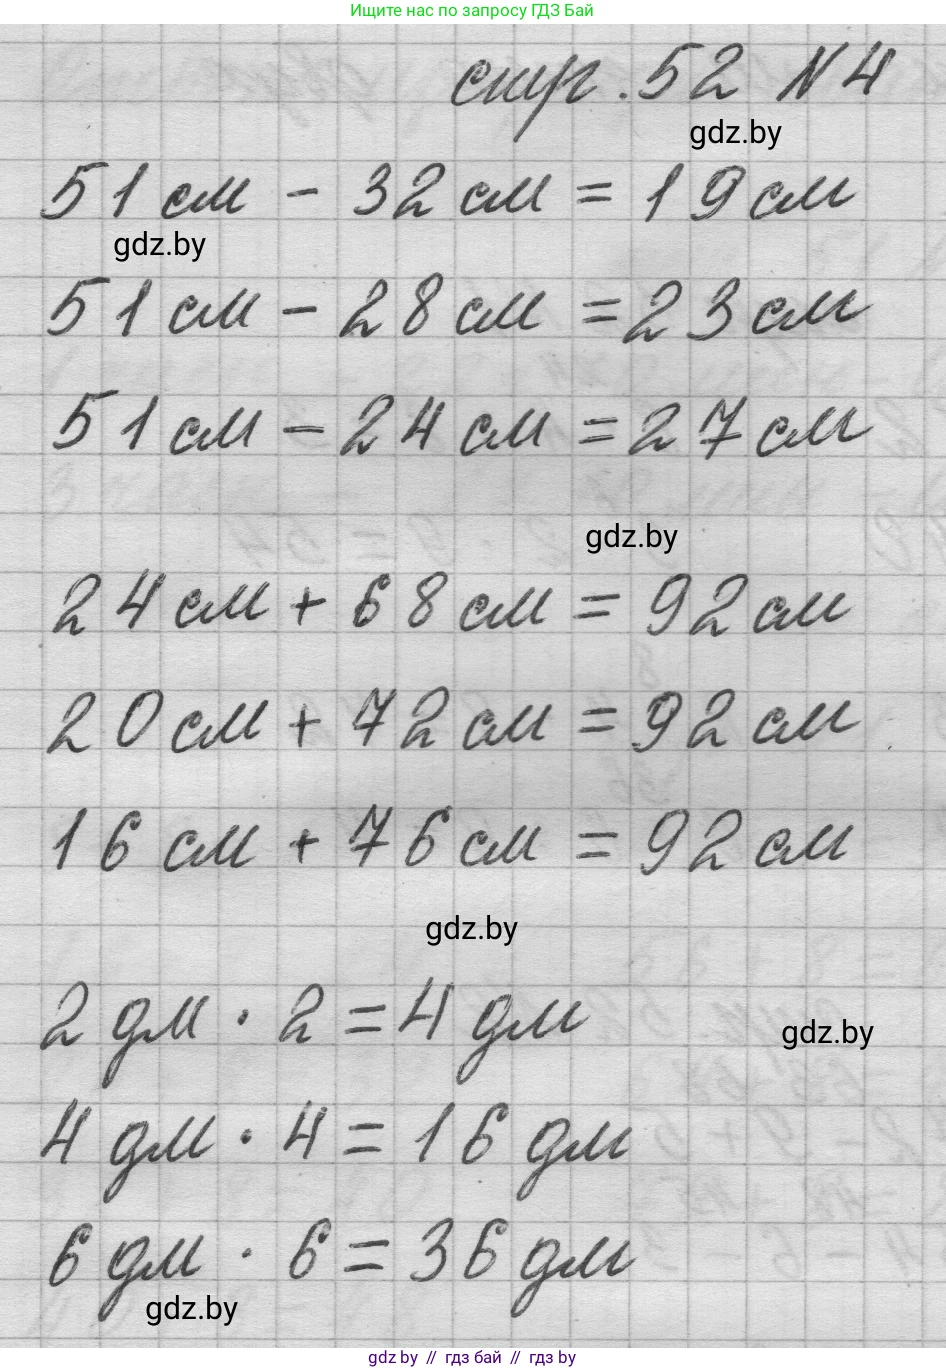 Ищите нас по запросу ГДЗ Бай
стр. 52 N 4
gdz.by
51 см - 32 см = 19 см
gdz.by
51 см - 28 см = 23 см
51 см - 24 см = 27 см
gdz.by
24 см + 68 см = 92 см
20 см + 72 см = 92 см
16 см + 76 см = 92 см
gdz.by
2 дм · 2 = 4 дм
gdz.by
4 дм · 4 = 16 дм
6 дм · 6 = 36 дм
gdz.by
gdz by // гдз бай // гдз by